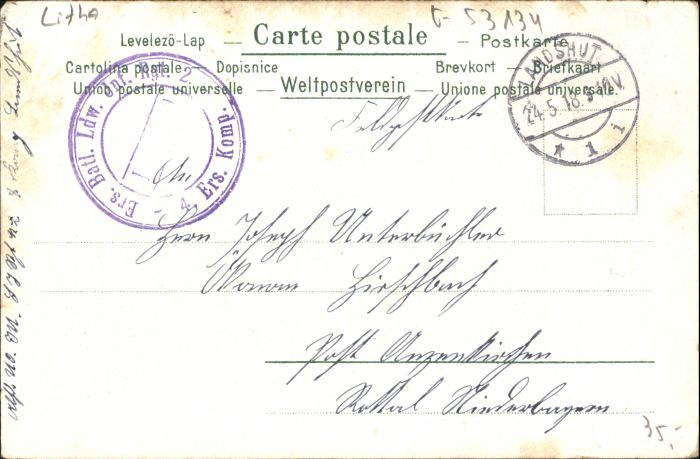 Litho
G-53134
Levelezö-Lap — Carte postale — Postkarte
Cartolina postale Dopisnice Brevkort — Briefkaart
Union postale universelle — Weltpostverein — Unione postale universale.
LANDSHUT
24.5.16. 9-10V.
* 1 i
Ers. Batl. Ldw. Inf. Regt. 2
4. Ers. Komp.
Feldpostkarte
An
Herrn Joseph Unterbuchler
Ökonom Hirschbach
Post Anzenkirchen
Rottal Niederbayern
35,-